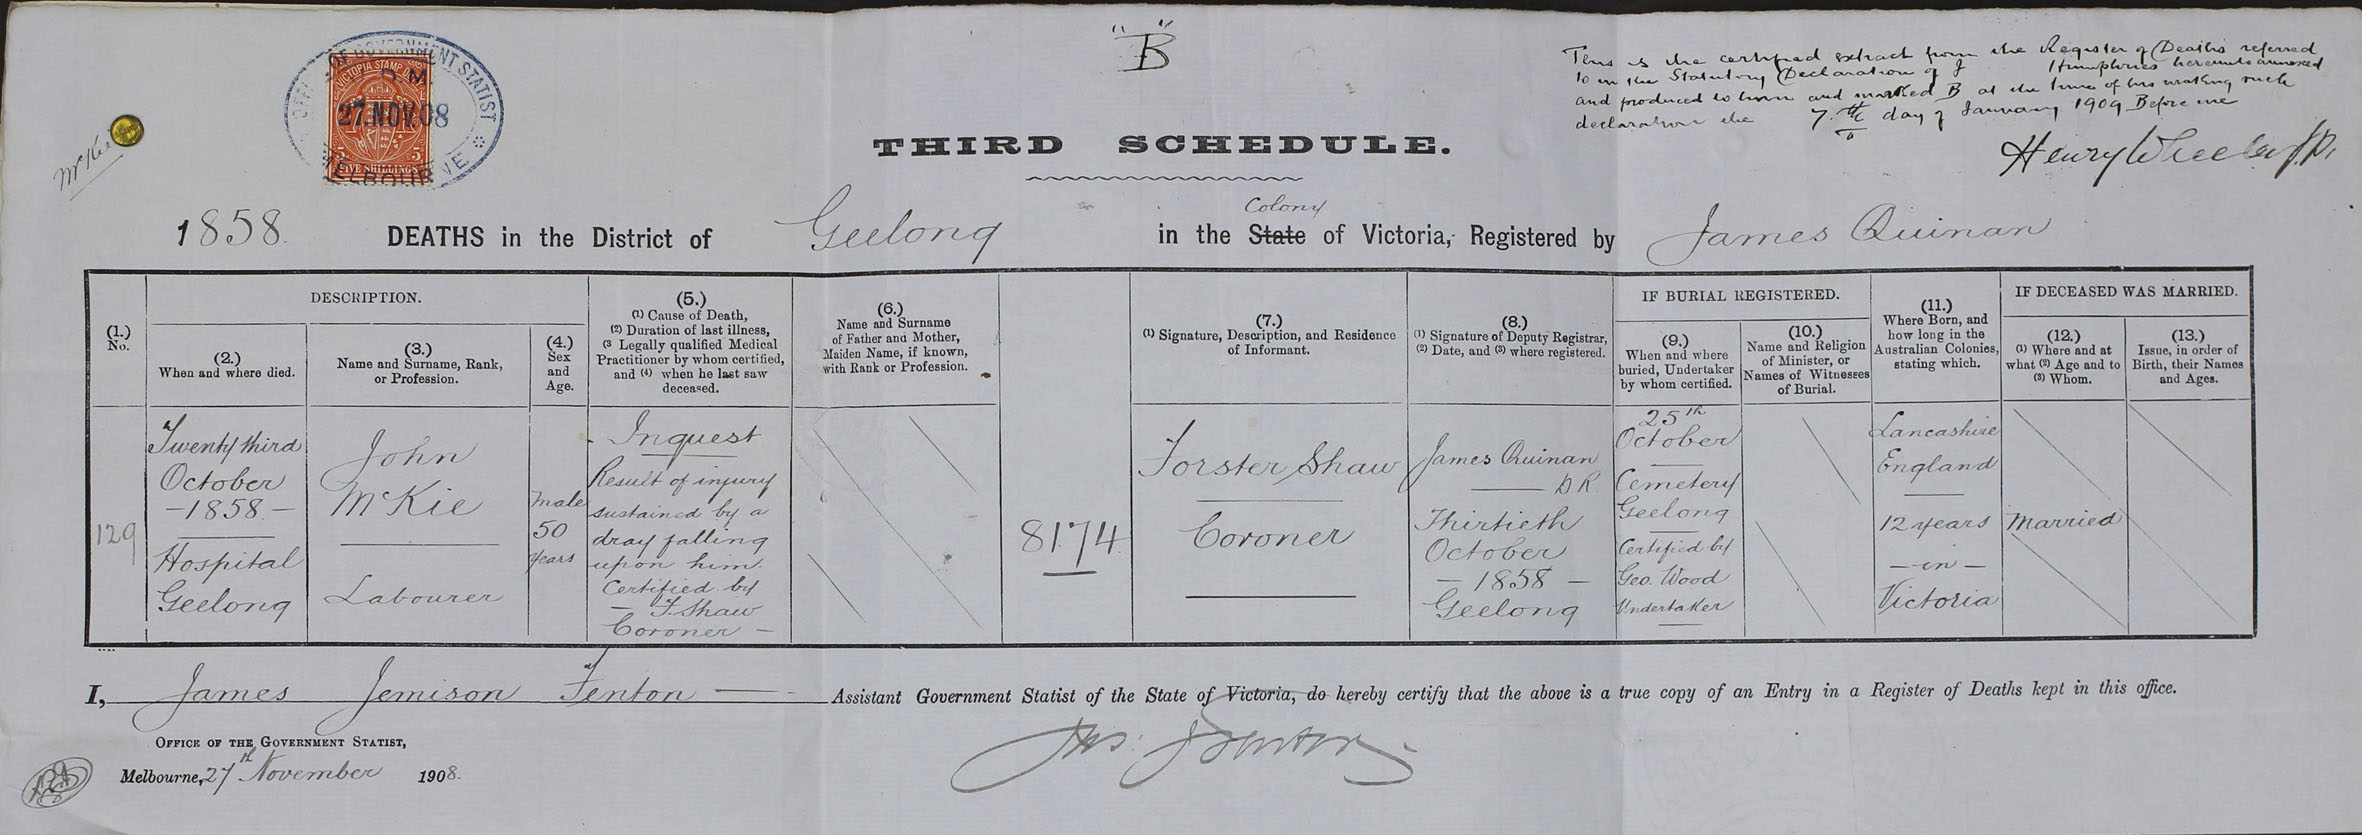 "B"
This is the certified extract from the Register of Deaths referred
to in the Statutory Declaration of J Humphries hereunto annexed
and produced to him and marked B at the time of his making such
declaration the 7th day of January 1909 Before me
Henry Wheeler J.P.
OFFICE OF GOVERNMENT STATIST
MELBOURNE
VICTORIA STAMP DUTY
27.NOV.08
FIVE SHILLINGS
McKie
THIRD SCHEDULE.
1858. DEATHS in the District of Geelong in the State Colony of Victoria, Registered by James Quinan
(1.)
No.
DESCRIPTION.
(2.)
When and where died.
(3.)
Name and Surname, Rank,
or Profession.
(4.)
Sex
and
Age.
(5.)
(1) Cause of Death,
(2) Duration of last illness,
(3 Legally qualified Medical
Practitioner by whom certified,
and (4) when he last saw
deceased.
(6.)
Name and Surname
of Father and Mother,
Maiden Name, if known,
with Rank or Profession.
(7.)
(1) Signature, Description, and Residence
of Informant.
(8.)
(1) Signature of Deputy Registrar,
(2) Date, and (3) where registered.
IF BURIAL REGISTERED.
(9.)
When and where
buried, Undertaker
by whom certified.
(10.)
Name and Religion
of Minister, or
Names of Witnesses
of Burial.
(11.)
Where Born, and
how long in the
Australian Colonies,
stating which.
IF DECEASED WAS MARRIED.
(12.)
(1) Where and at
what (2) Age and to
(3) Whom.
(13.)
Issue, in order of
Birth, their Names
and Ages.
129
Twenty third
October
- 1858 -
Hospital
Geelong
John
McKie
Labourer
Male
50
years
Inquest
Result of injury
sustained by a
dray falling
upon him.
Certified by
- F. Shaw
Coroner -
8174
Forster Shaw
Coroner
James Quinan
D.R.
Thirtieth
October
- 1858 -
Geelong
25th
October
Cemetery
Geelong
Certified by
Geo. Wood
Undertaker
Lancashire
England
12 years
- in -
Victoria
Married
I, James Jemison Fenton Assistant Government Statist of the State of Victoria, do hereby certify that the above is a true copy of an Entry in a Register of Deaths kept in this office.
Jas. J Fenton
OFFICE OF THE GOVERNMENT STATIST,
Melbourne, 27th November 1908.